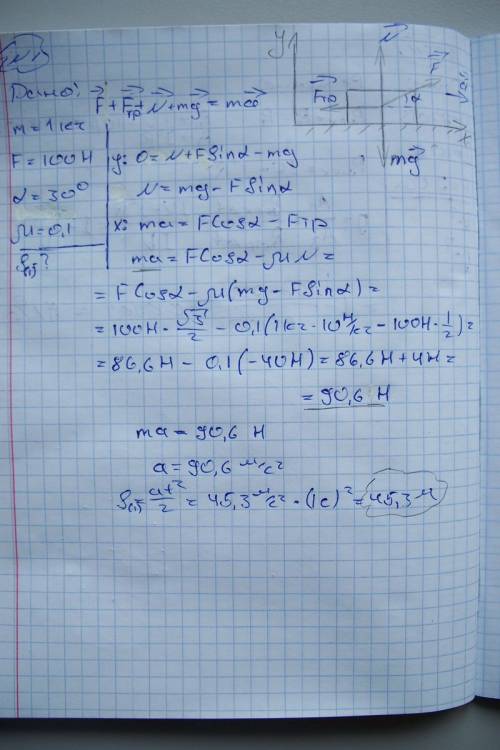 N1
Дано: F + Fтр + N + mg = ma
m = 1 кг
F = 100 Н
α = 30°
μ = 0,1
S₍₁₎?
y: 0 = N + F sin α - mg
N = mg - F sin α
x: ma = F cos α - Fтр
ma = F cos α - μN =
= F cos α - μ(mg - F sin α) =
= 100 Н · √3/2 - 0,1(1 кг · 10 Н/кг - 100 Н · 1/2) =
= 86,6 Н - 0,1(-40 Н) = 86,6 Н + 4 Н =
= 90,6 Н
ma = 90,6 Н
a = 90,6 м/с²
S₍₁₎ = at²/2 = 45,3 м/с² · (1 с)² = 45,3 м
y
N
F
Fтр
α
a
x
mg